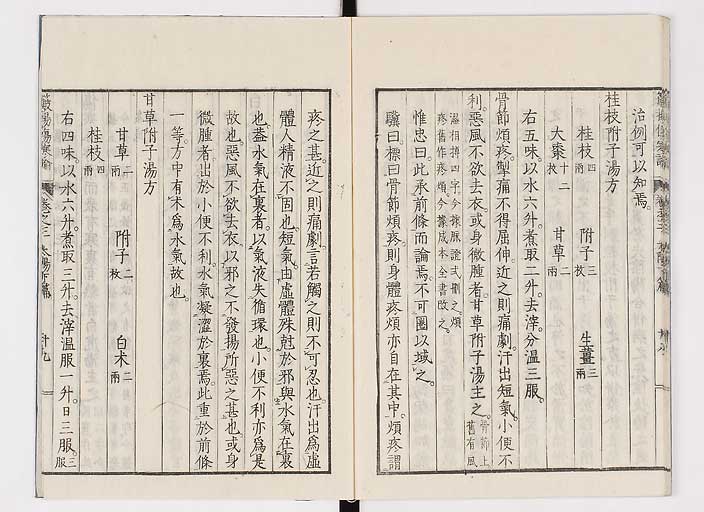 治例可以知焉。
桂枝附子湯方
桂枝四兩 附子三枚 生薑三兩
大棗十二枚 甘草二兩
右五味。以水六升。煮取二升。去滓。分溫三服。
骨節煩疼。掣痛不得屈伸。近之則痛劇。汗出短氣。小便不
利。惡風不欲去衣。或身微腫者。甘草附子湯主之。骨節上舊有風
濕相搏四字。今據脈證式刪之。煩疼舊作疼煩。今據成本全書改之。
惟忠曰。此承前條而論焉。不可圈以域之。
驥曰。標曰骨節煩疼。則身體疼煩亦自在其中。煩疼。謂
疼之甚。近之則痛劇。言若觸之則不可忍也。汗出爲虛
體人精液不固也。短氣。由虛體殊尅於邪與水氣在裏
也。蓋水氣在裏者。以氣液失循環也。小便不利亦爲是
故也。惡風不欲去衣。以邪之不發揚所惡之甚也。或身
微腫者。出於小便不利。水氣凝澀於裏焉。此重於前條
一等。方中有朮。爲水氣故也。
甘草附子湯方
甘草二兩 附子二枚 白朮二兩
桂枝四兩
右四味。以水六升。煮取三升。去滓。溫服一升。日三服。三服
卷之三 太陽下篇 廿九